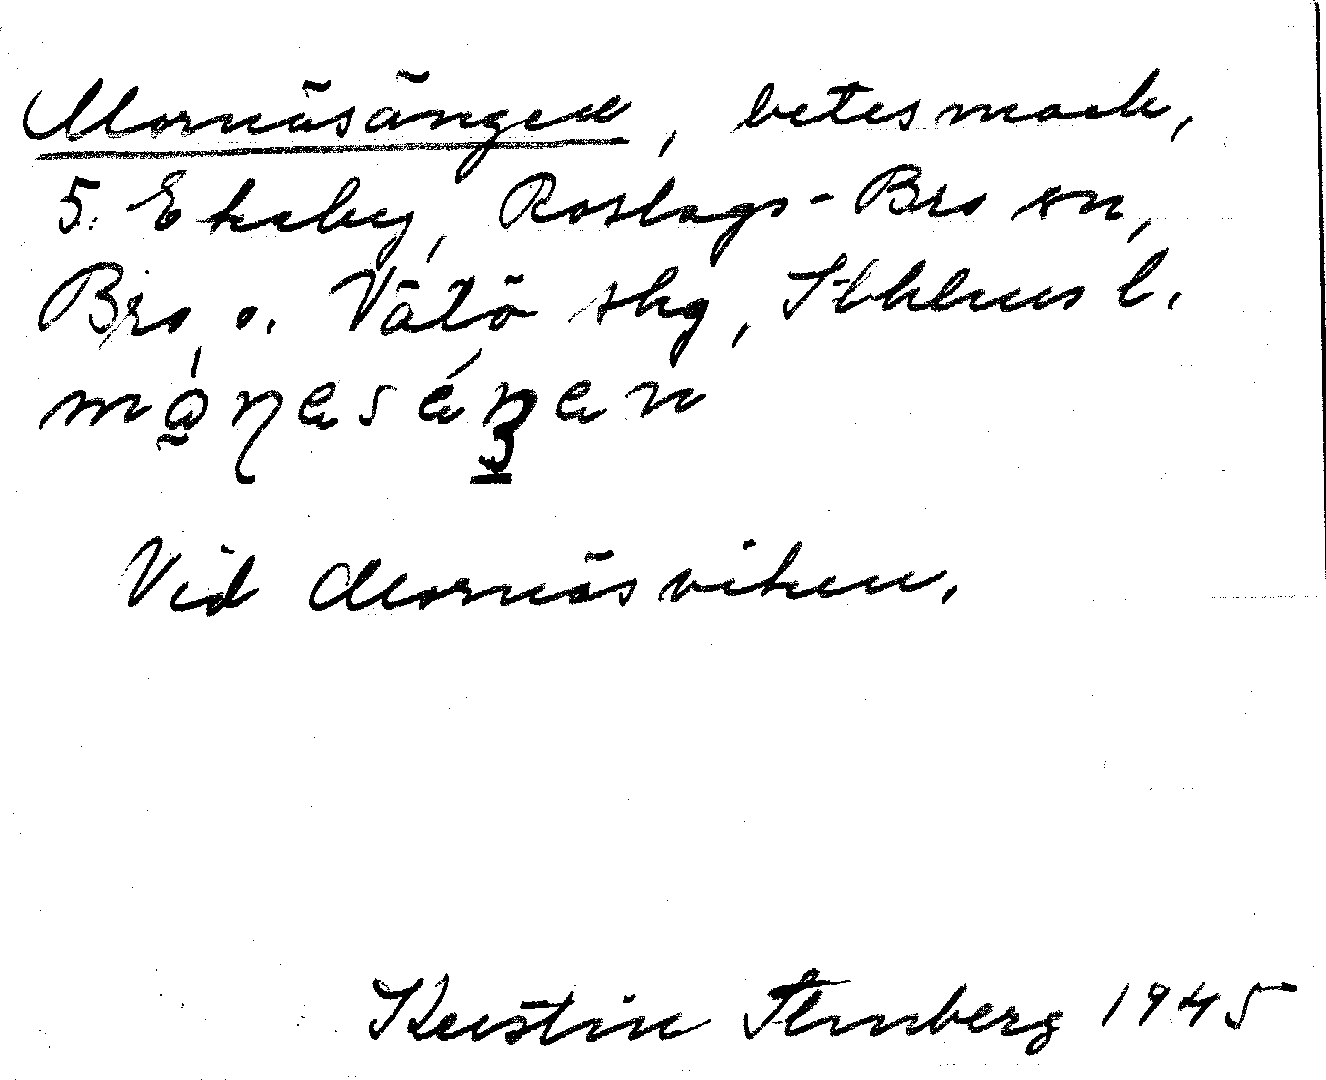 Mornäsängen, betesmark,
5. Ekeby, Roslags-Bro sn,
Bro o. Vätö skg, Sthlms l.
Vid Mornäsviken.
Kerstin Stenberg 1945